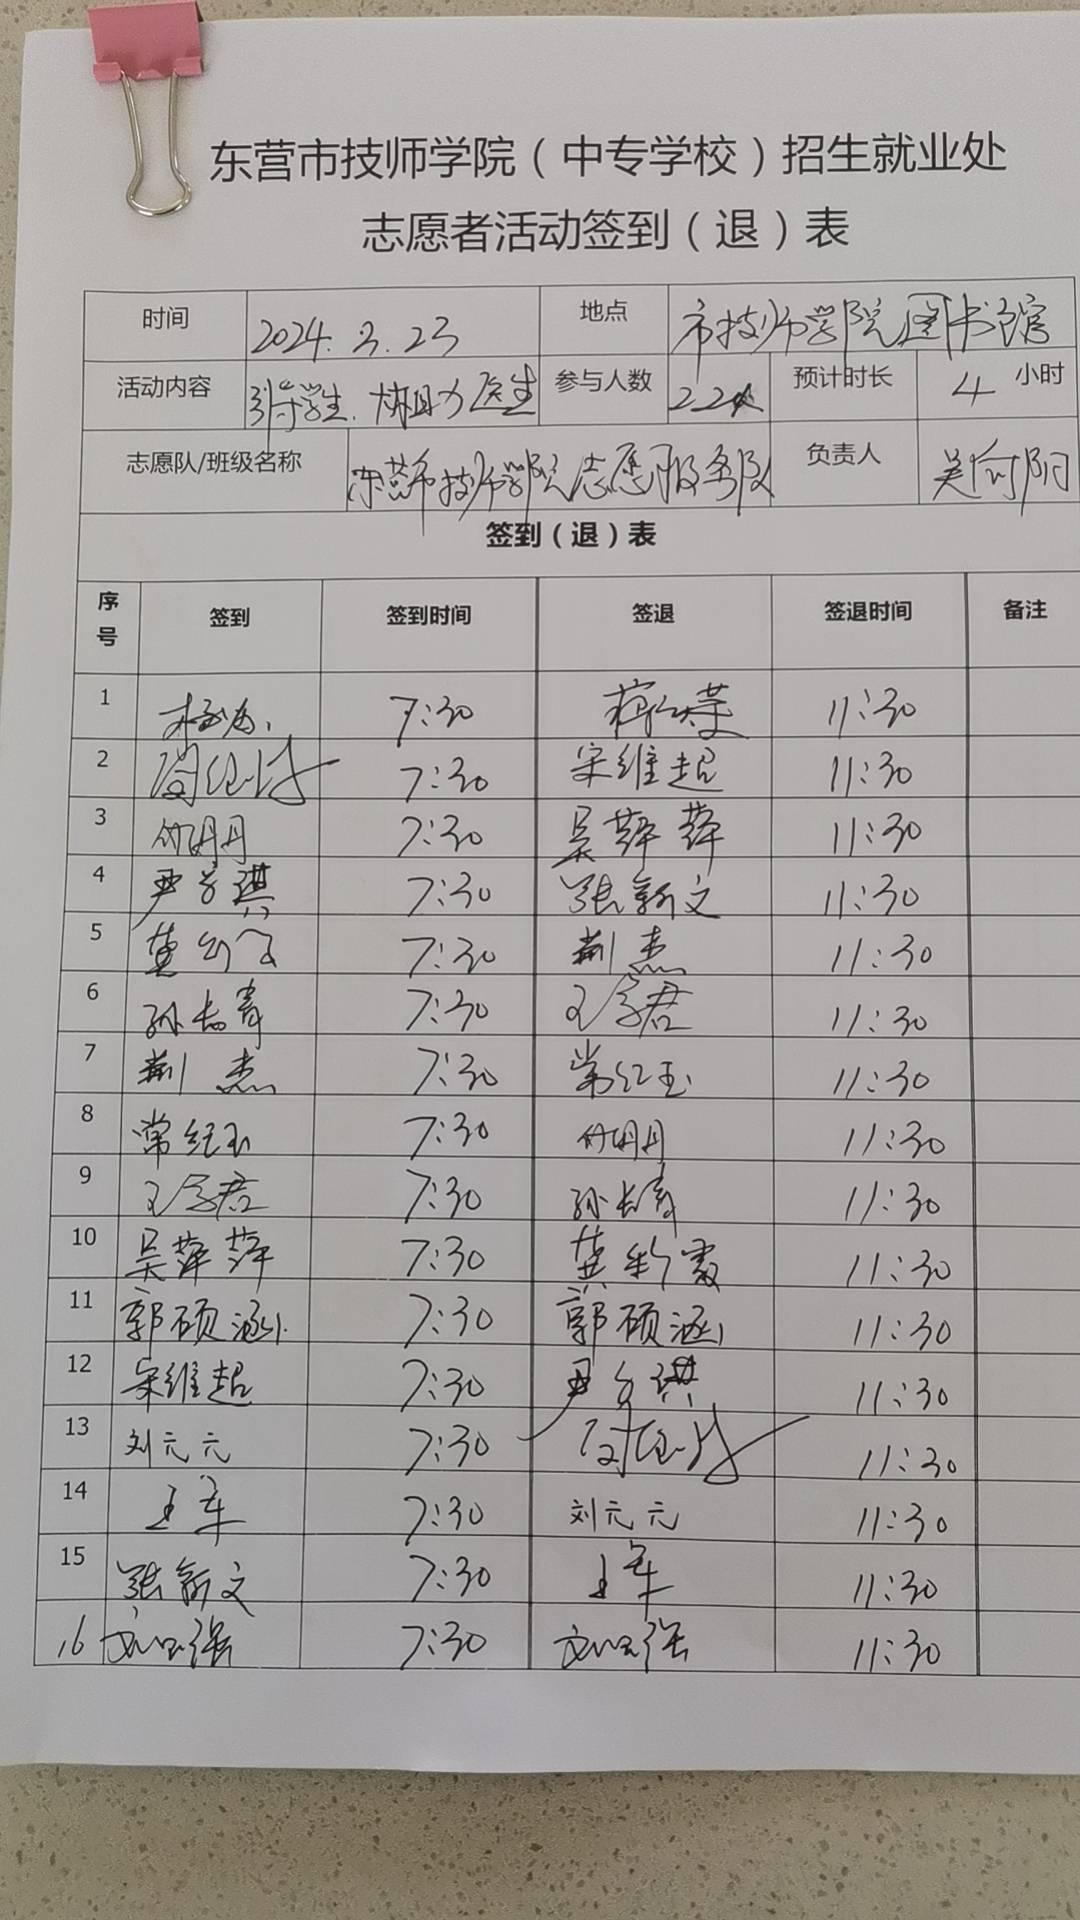 东营市技师学院（中专学校）招生就业处
志愿者活动签到（退）表
时间 2024.3.23 地点 市技师学院图书馆
活动内容 引导学生、协助医生 参与人数 22人 预计时长 4 小时
志愿队/班级名称 东营市技师学院志愿服务队 负责人 吴向阳
签到（退）表
序号 签到 签到时间 签退 签退时间 备注
1 7:30 11:30
2 7:30 宋维超 11:30
3 竹明月 7:30 吴萍萍 11:30
4 尹子琪 7:30 张新文 11:30
5 7:30 荆杰 11:30
6 孙长青 7:30 王学君 11:30
7 荆杰 7:30 常红玉 11:30
8 常红玉 7:30 竹明月 11:30
9 王学君 7:30 孙长青 11:30
10 吴萍萍 7:30 11:30
11 郭硕涵 7:30 郭硕涵 11:30
12 宋维超 7:30 尹子琪 11:30
13 刘元元 7:30 11:30
14 王军 7:30 刘元元 11:30
15 张新文 7:30 王军 11:30
16 7:30 11:30